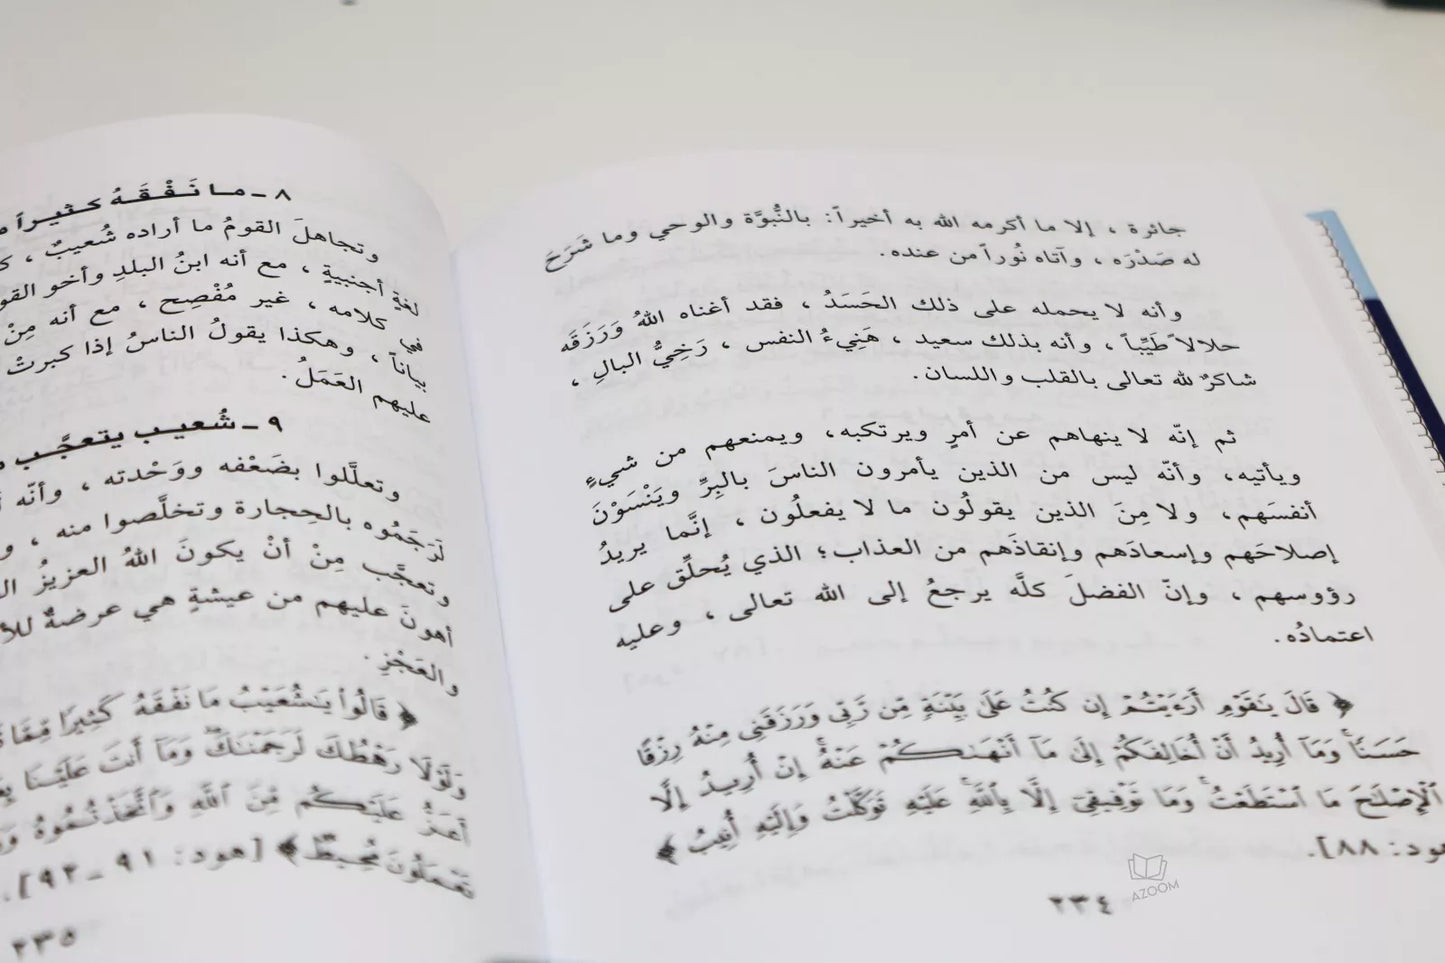 جائرة ، إلا ما أكرمه الله به أخيراً: بالنُّبوَّة والوحي وما شَرَحَ
له صَدْرَه ، وآتاه نُوراً من عنده.
وأنه لا يحمله على ذلك الحَسَدُ ، فقد أغناه اللهُ وَرَزَقَه
حلالاً طَيِّباً ، وأنه بذلك سعيد ، هَنِيءُ النفس ، رَخِيُّ البالِ ،
شاكرٌ لله تعالى بالقلب واللسان.
ثم إنّه لا ينهاهم عن أمرٍ ويرتكبه، ويمنعهم من شيءٍ
ويأتيه، وأنّه ليس من الذين يأمرون الناسَ بالبِرِّ ويَنْسَوْنَ
أنفسَهم، ولا مِنَ الذين يقولُون ما لا يفعلُون ، إنَّما يريدُ
إصلاحَهم وإسعادَهم وإنقاذَهم من العذاب؛ الذي يُحلِّق على
رؤوسهم ، وإنّ الفضلَ كلَّه يرجعُ إلى الله تعالى ، وعليه
اعتمادُه.
﴿ قَالَ يَٰقَوْمِ أَرَءَيْتُمْ إِن كُنتُ عَلَىٰ بَيِّنَةٍ مِّن رَّبِّى وَرَزَقَنِى مِنْهُ رِزْقًا
حَسَنًا ۚ وَمَآ أُرِيدُ أَنْ أُخَالِفَكُمْ إِلَىٰ مَآ أَنْهَىٰكُمْ عَنْهُ ۚ إِنْ أُرِيدُ إِلَّا
ٱلْإِصْلَٰحَ مَا ٱسْتَطَعْتُ ۚ وَمَا تَوْفِيقِىٓ إِلَّا بِٱللَّهِ ۚ عَلَيْهِ تَوَكَّلْتُ وَإِلَيْهِ أُنِيبُ ﴾
هود: ٨٨].
٢٣٤
AZOOM
٨ ـ ما نَفْقَهُ كثيراً
وتجاهلَ القومُ ما أراده شُعيبٌ ،
لغةٍ أجنبيةٍ ، مع أنه ابنُ البلدِ وأخو
في كلامه ، غير مُفْصِح ، مع أنه مِنْ
بياناً ، وهكذا يقولُ الناسُ إذا كبرتْ
عليهم العَمَلُ.
٩ ـ شُعيب يتعجَّب
وتعلَّلوا بضَعْفه ووَحْدته ، وأنّه
لَرَجَمُوه بالحِجارة وتخلَّصوا منه ،
وتعجَّب مِنْ أنْ يكونَ اللهُ العزيزُ
أهونَ عليهم من عيشةٍ هي عرضةٌ
والعَجْزِ.
﴿ قَالُوا۟ يَٰشُعَيْبُ مَا نَفْقَهُ كَثِيرًا مِّمَّا
وَلَوْلَا رَهْطُكَ لَرَجَمْنَٰكَ ۖ وَمَآ أَنتَ عَلَيْنَا
أَعَزُّ عَلَيْكُم مِّنَ ٱللَّهِ وَٱتَّخَذْتُمُوهُ
تَعْمَلُونَ مُحِيطٌ ﴾ [هود: ٩١ ـ ٩٢].
٢٣٥